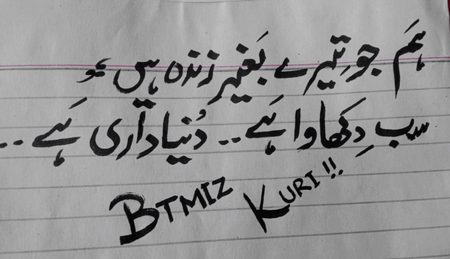 ہَم جو تیرے بَغیر زِندہ ہیں
سب دِکھاوا ہَے.. دُنیا داری ہَے..
BTMIZ KURI!!